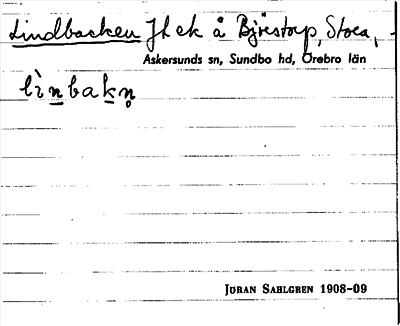 Lindbacken Jl ek å Björstorp, Stora,
Askersunds sn, Sundbo hd, Örebro län
lìnbakn̥
JÖRAN SAHLGREN 1908-09